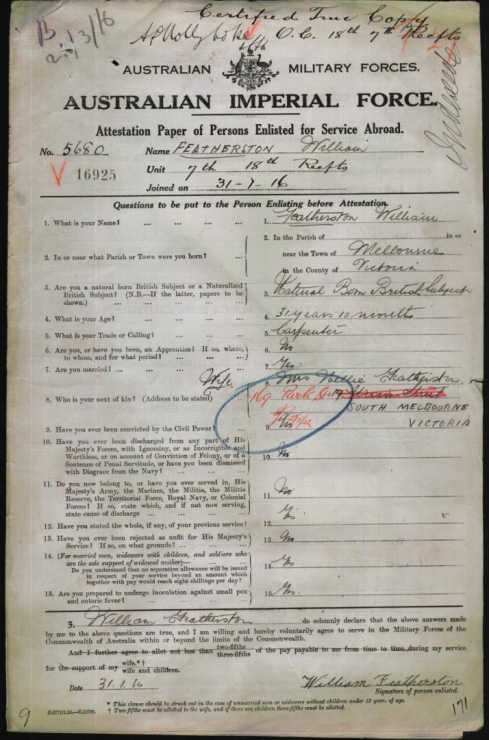 Certified True Copy
O.C. 18th 7th Reefts
B
2/3/16
AUSTRALIAN MILITARY FORCES.
AUSTRALIAN IMPERIAL FORCE.
Attestation Paper of Persons Enlisted for Service Abroad.
No. 5680 Name FEATHERSTON William
Unit 7th 18th Reefts
V 16925
Joined on 31-1-16
Questions to be put to the Person Enlisting before Attestation.
1. What is your Name? ... ... 1. Featherston William
2. In or near what Parish or Town were you born? ... 2. In the Parish of in or
near the Town of Melbourne
in the County of Victoria
3. Are you a natural born British Subject or a Naturalised
British Subject? (N.B.—If the latter, papers to be
shown.) ... 3. Natural Born British Subject
4. What is your Age? ... 4. 31 years 10 months
5. What is your Trade or Calling? ... 5. Carpenter
6. Are you, or have you been, an Apprentice? If so, where,
to whom, and for what period? ... 6. No
7. Are you married? ... 7. Yes
Wife Mrs Nellie Featherston
8. Who is your next of kin? (Address to be stated) 169 Park St 19 Street
SOUTH MELBOURNE
VICTORIA
9. Have you ever been convicted by the Civil Power? 9. No
10. Have you ever been discharged from any part of His
Majesty's Forces, with Ignominy, or as Incorrigible and
Worthless, or on account of Conviction of Felony, or of a
Sentence of Penal Servitude, or have you been dismissed
with Disgrace from the Navy? ... 10. No
11. Do you now belong to, or have you ever served in, His
Majesty's Army, the Marines, the Militia, the Militia
Reserve, the Territorial Force, Royal Navy, or Colonial
Forces? If so, state which, and if not now serving,
state cause of discharge ... 11. No
12. Have you stated the whole, if any, of your previous service? 12.
13. Have you ever been rejected as unfit for His Majesty's
Service? If so, on what grounds? ... 13. No
14. (For married men, widowers with children, and soldiers who
are the sole support of widowed mother)—
Do you understand that no separation allowance will be issued
in respect of your service beyond an amount which
together with pay would reach eight shillings per day? 14. Yes
15. Are you prepared to undergo inoculation against small pox
and enteric fever? ... 15. Yes
I, William Featherston do solemnly declare that the above answers made
by me to the above questions are true, and I am willing and hereby voluntarily agree to serve in the Military Forces of the
Commonwealth of Australia within or beyond the limits of the Commonwealth.
And I further agree to allot not less than two-fifths three-fifths of the pay payable to me from time to time during my service
for the support of my wife.*† wife and children.
Date 31.1.16 William Featherston
Signature of person enlisted.
* This clause should be struck out in the case of unmarried men or widowers without children under 18 years of age.
† Two-fifths must be allotted to the wife, and if there are children three-fifths must be allotted.
9
171